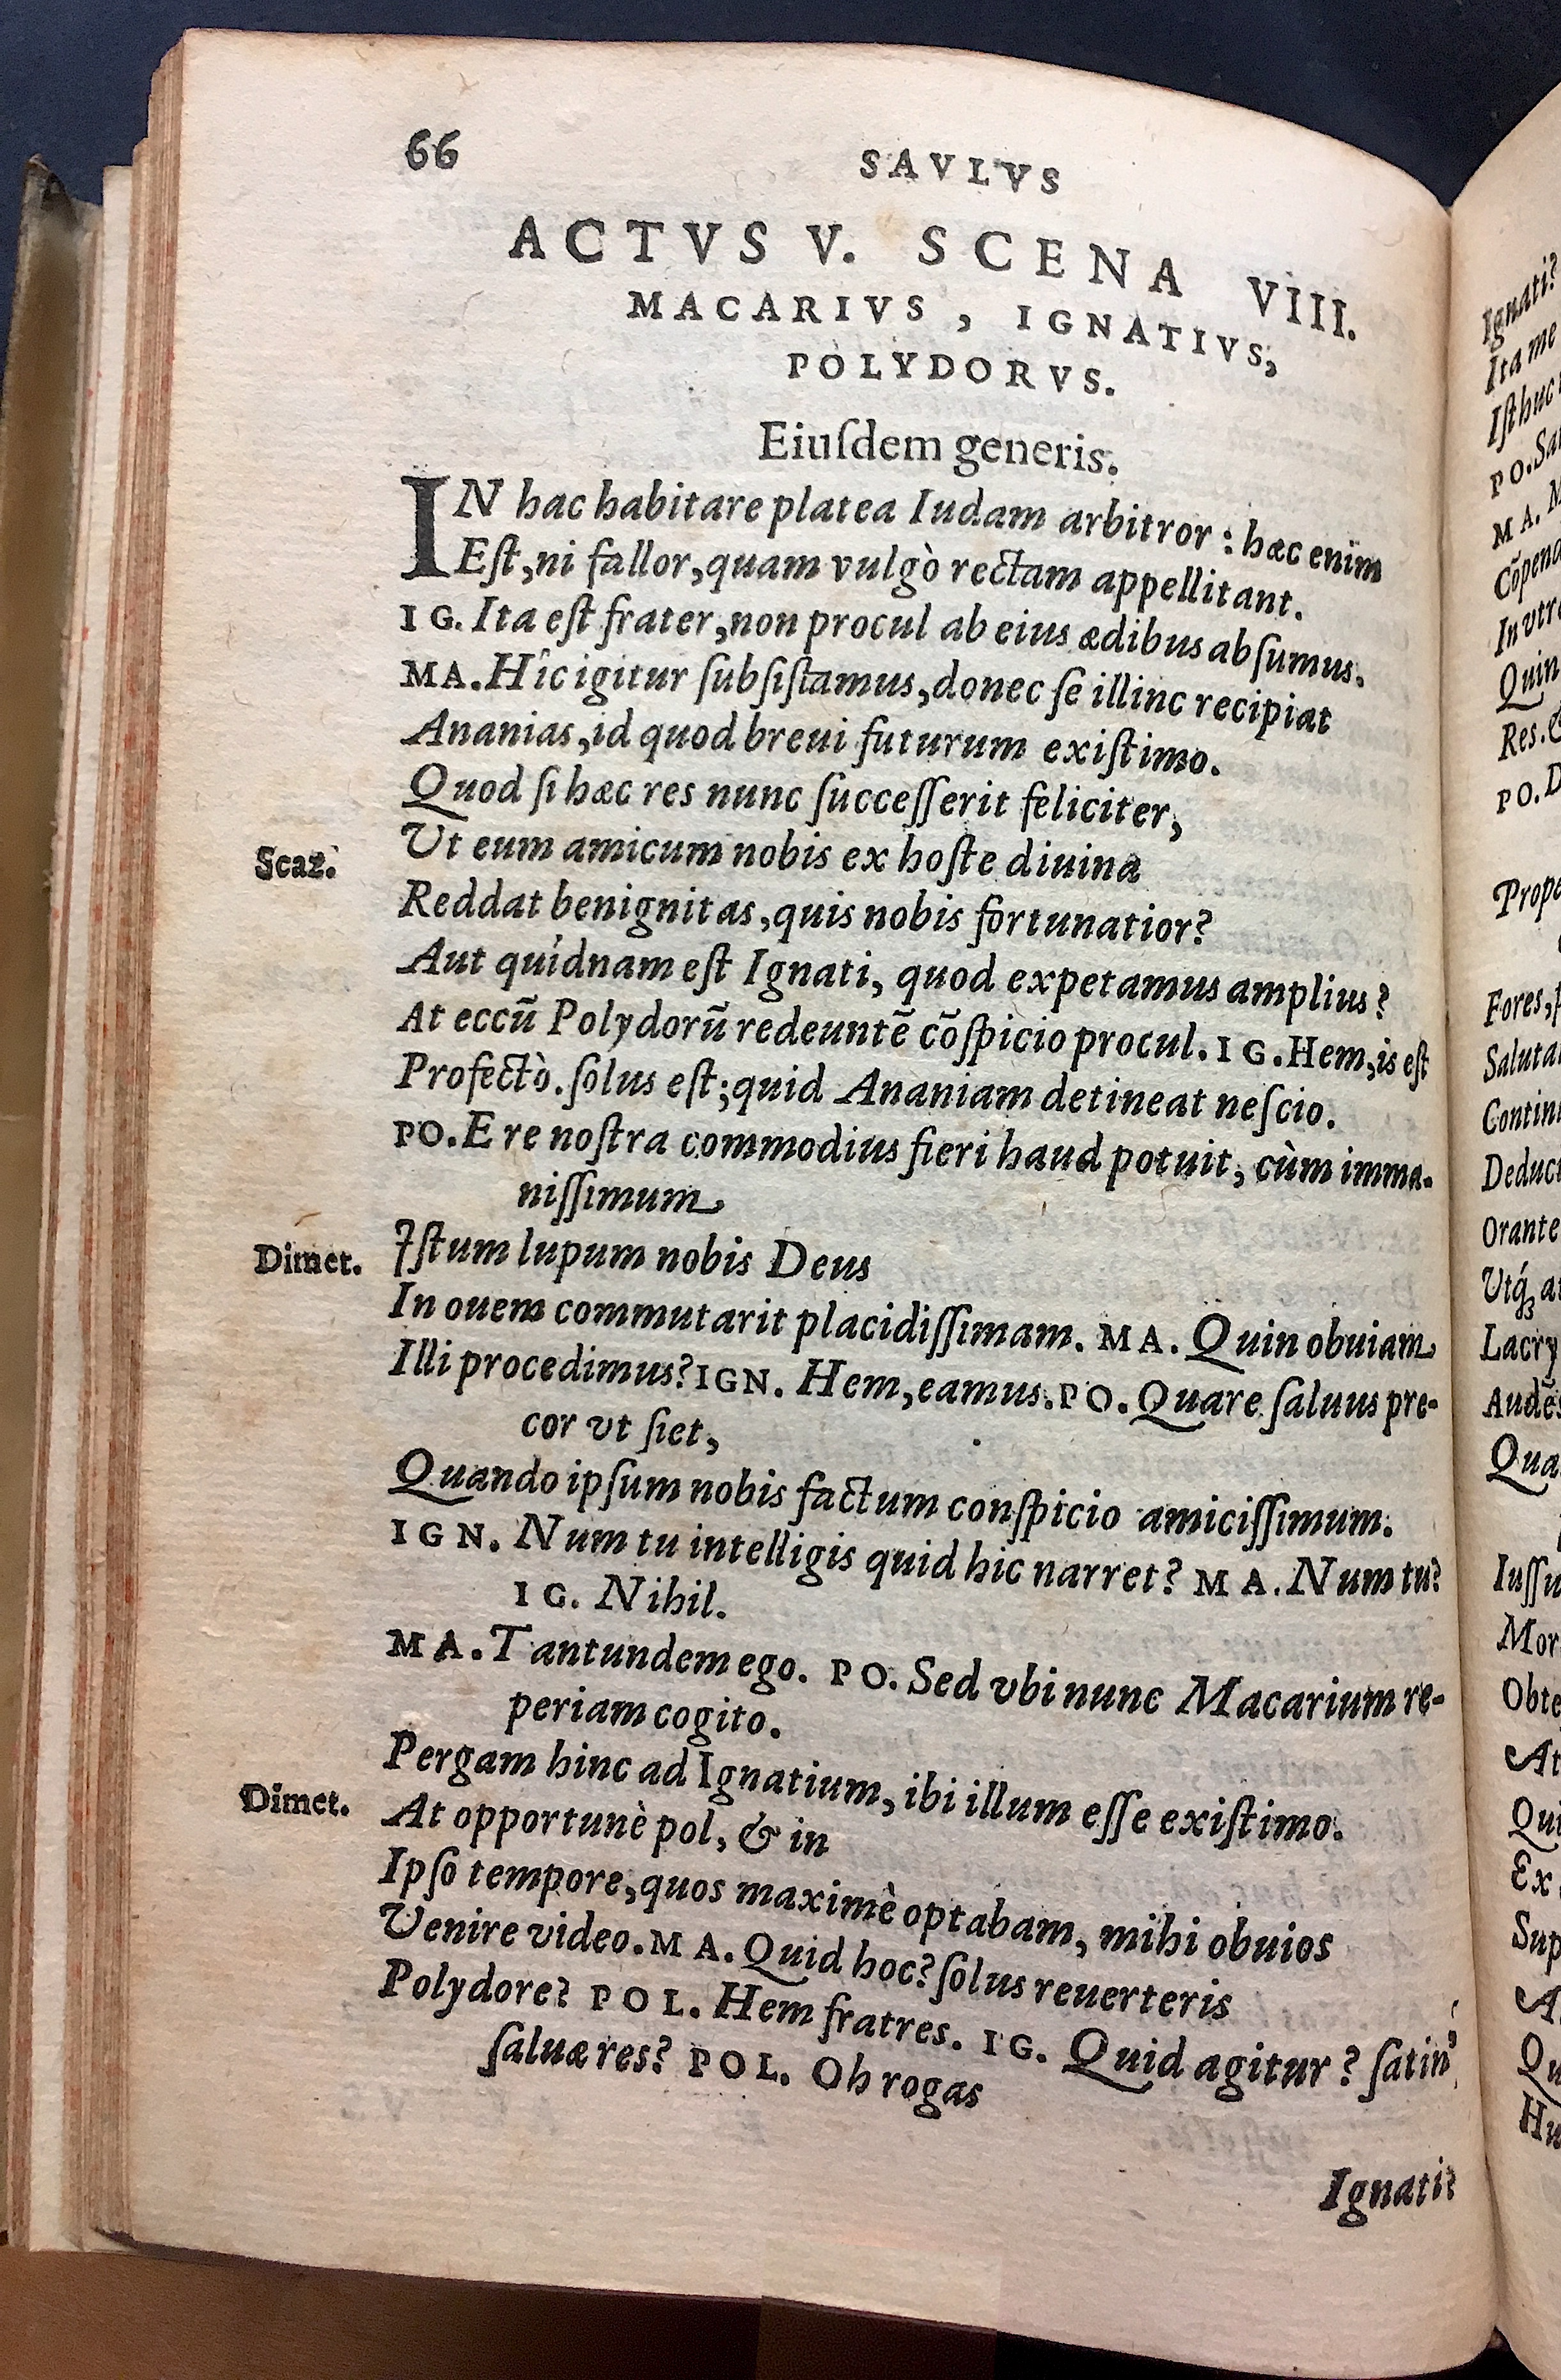 66
SAVLVS
ACTVS V. SCENA VIII.
MACARIVS, IGNATIVS,
POLYDORVS.
Eiuſdem generis.
IN hac habitare platea Iudam arbitror: hæc enim
Eſt, ni fallor, quam vulgò rectam appellitant.
IG. Ita eſt frater, non procul ab eius ædibus abſumus.
MA. Hîc igitur ſubſiſtamus, donec ſe illinc recipiat
Ananias, id quod breui futurum exiſtimo.
Quod ſi hæc res nunc ſucceſſerit feliciter,
Scaz. Ut eum amicum nobis ex hoſte diuina
Reddat benignitas, quis nobis fortunatior?
Aut quidnam eſt Ignati, quod expetamus amplius?
At eccũ Polydorũ redeuntẽ cõſpicio procul. IG. Hem, is eſt
Profectò. ſolus eſt; quid Ananiam detineat neſcio.
PO. E re noſtra commodius fieri haud potuit, cùm imma-
niſſimum
Dimet. Iſtum lupum nobis Deus
In ouem commutarit placidiſſimam. MA. Quin obuiam
Illi procedimus? IGN. Hem, eamus. PO. Quare ſaluus pre-
cor vt ſiet,
Quando ipſum nobis factum conſpicio amiciſſimum.
IGN. Num tu intelligis quid hic narret? MA. Num tu?
IG. Nihil.
MA. Tantundem ego. PO. Sed vbi nunc Macarium re-
periam cogito.
Pergam hinc ad Ignatium, ibi illum eſſe exiſtimo.
Dimet. At opportunè pol, & in
Ipſo tempore, quos maximè optabam, mihi obuios
Venire video. MA. Quid hoc? ſolus reuerteris
Polydore? POL. Hem fratres. IG. Quid agitur? ſatin'
ſaluæ res? POL. Oh rogas
Ignati?
Ignati?
Ita me
Iſthuc
PO. Sa
MA. M
Cõpen
In vtr
Quin
Res.
PO. D
Prope
Fores,
Saluta
Contin
Deduc
Orante
Utq́ꝫ a
Lacry
Audẽ
Qua
Iuſſu
Mor
Obte
At
Qui
Ex
Sup
A
Qu
Hu